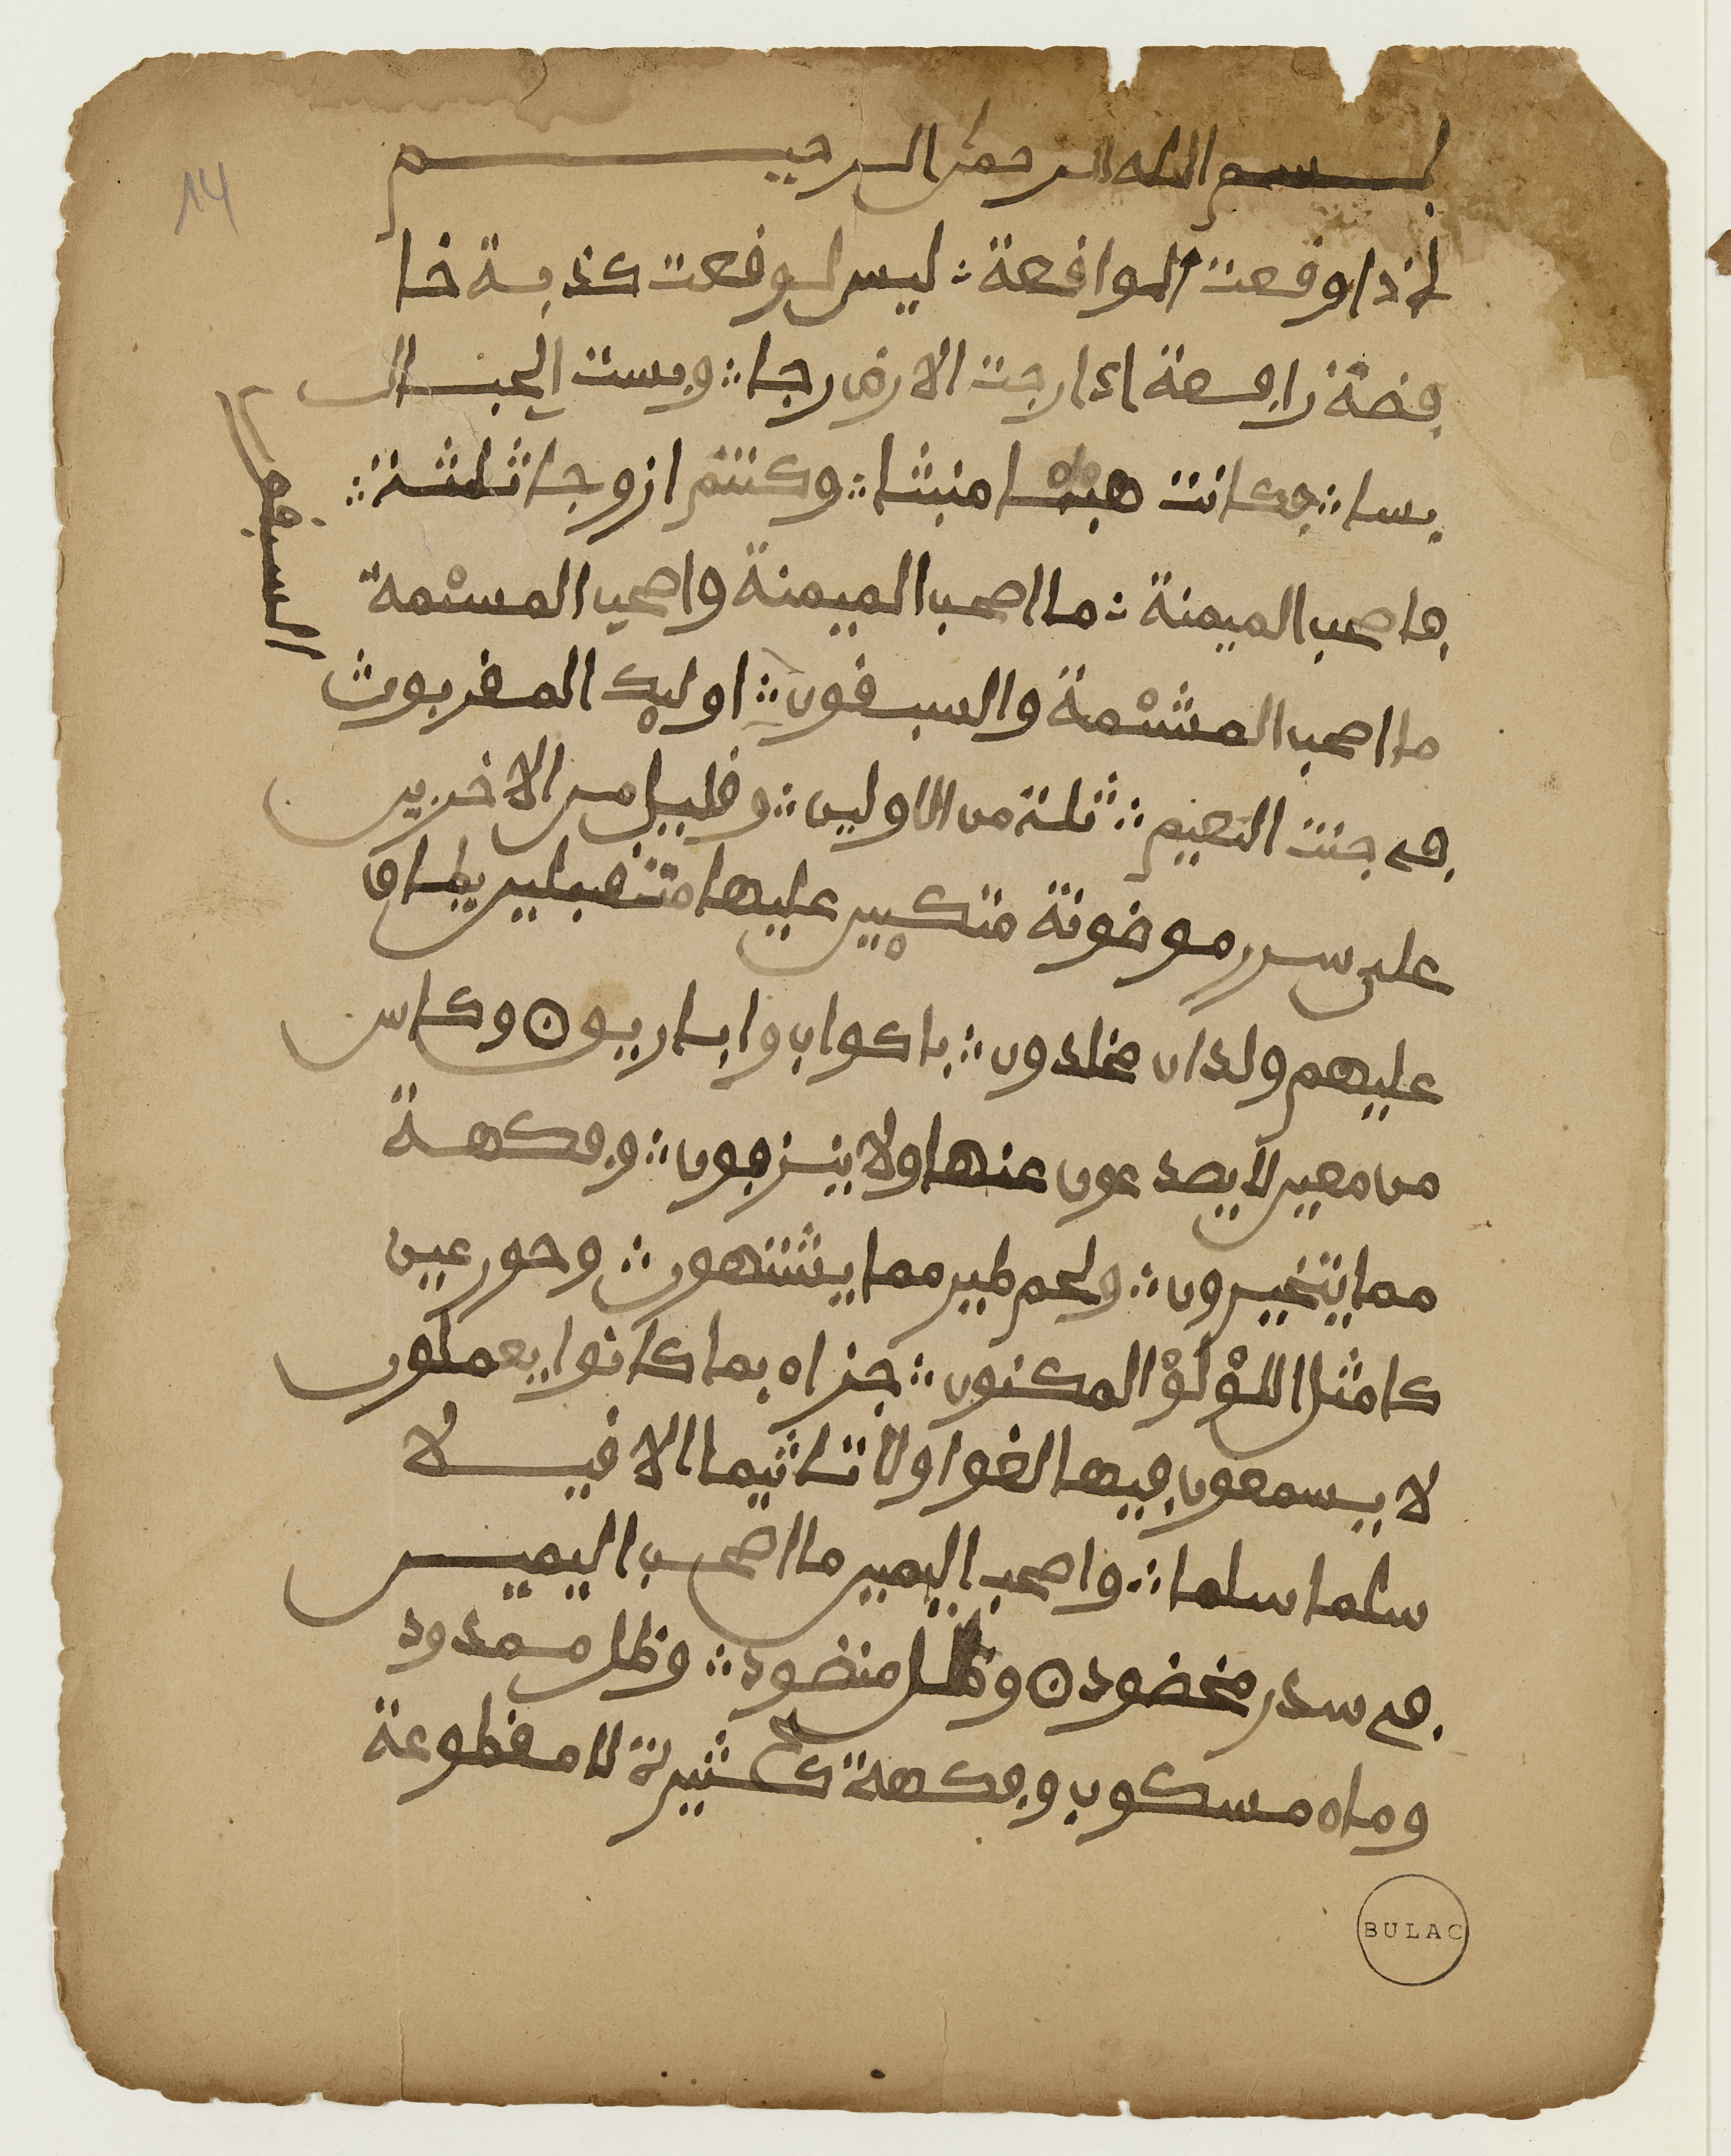 بسم الله الرحمن الرحيم
14
اذا وفعت الوافعة ∴ ليس لوفعت كذبة خا
فضة رافعة اذا رجت الارض رجا ∴ وبست الجبال
بسا ∴ فكانت هباء منبثا ∴ وكنتم ازوجا ثلثة ∴
فاصحب الميمنة ∴ ما اصحب الميمنة واصحب المسئمة
ما اصحب المشئمة والسبفون ∴ اوليك المفربون
في جنت النعيم ∴ ثلة من الاولين ∴ وفليل من الاخرين
على سرر موضونة متكيين عليها متفبلين يطاف
عليهم ولدان مخلدون ∴ باكواب واباريون وكاس
من معين لا يصدعون عنها ولا ينزفون ∴ وفكهة
مما يتخيرون ∴ ولحم طير مما يشتهون ∴ وحور عين
كامثل اللؤلؤ المكنون ∴ جزاء بما كانوا يعملون
لا يسمعون فيها لغوا ولا تاثيما الا فيلا
سلما سلما ∴ واصحب اليمين ما اصحب اليمين
في سدر مخضود ن وطلح منضود ∴ وظل ممدود
وماء مسكوب وفكهة كثيرة لا مفطوعة
BULAC